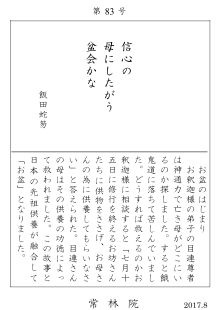 第 83 号
信心の
母にしたがう
盆会かな
飯田蛇笏
お盆のはじまり
お釈迦様の弟子の目連尊者
は神通力で亡き母がどこにい
るのか探しました。すると餓
鬼道に落ちて苦しんでいまし
た。どうすれば救えるのかお
釈迦様に相談すると「七月十
五日に修行を終えるお坊さん
たちに供物をささげ、お母さ
んの為に供養してもらいなさ
い」と答えられた。目連さん
の母はその供養の功徳によっ
て救われました。この故事と
日本の先祖供養が融合して
「お盆」となりました。
常 林 院
2017.8